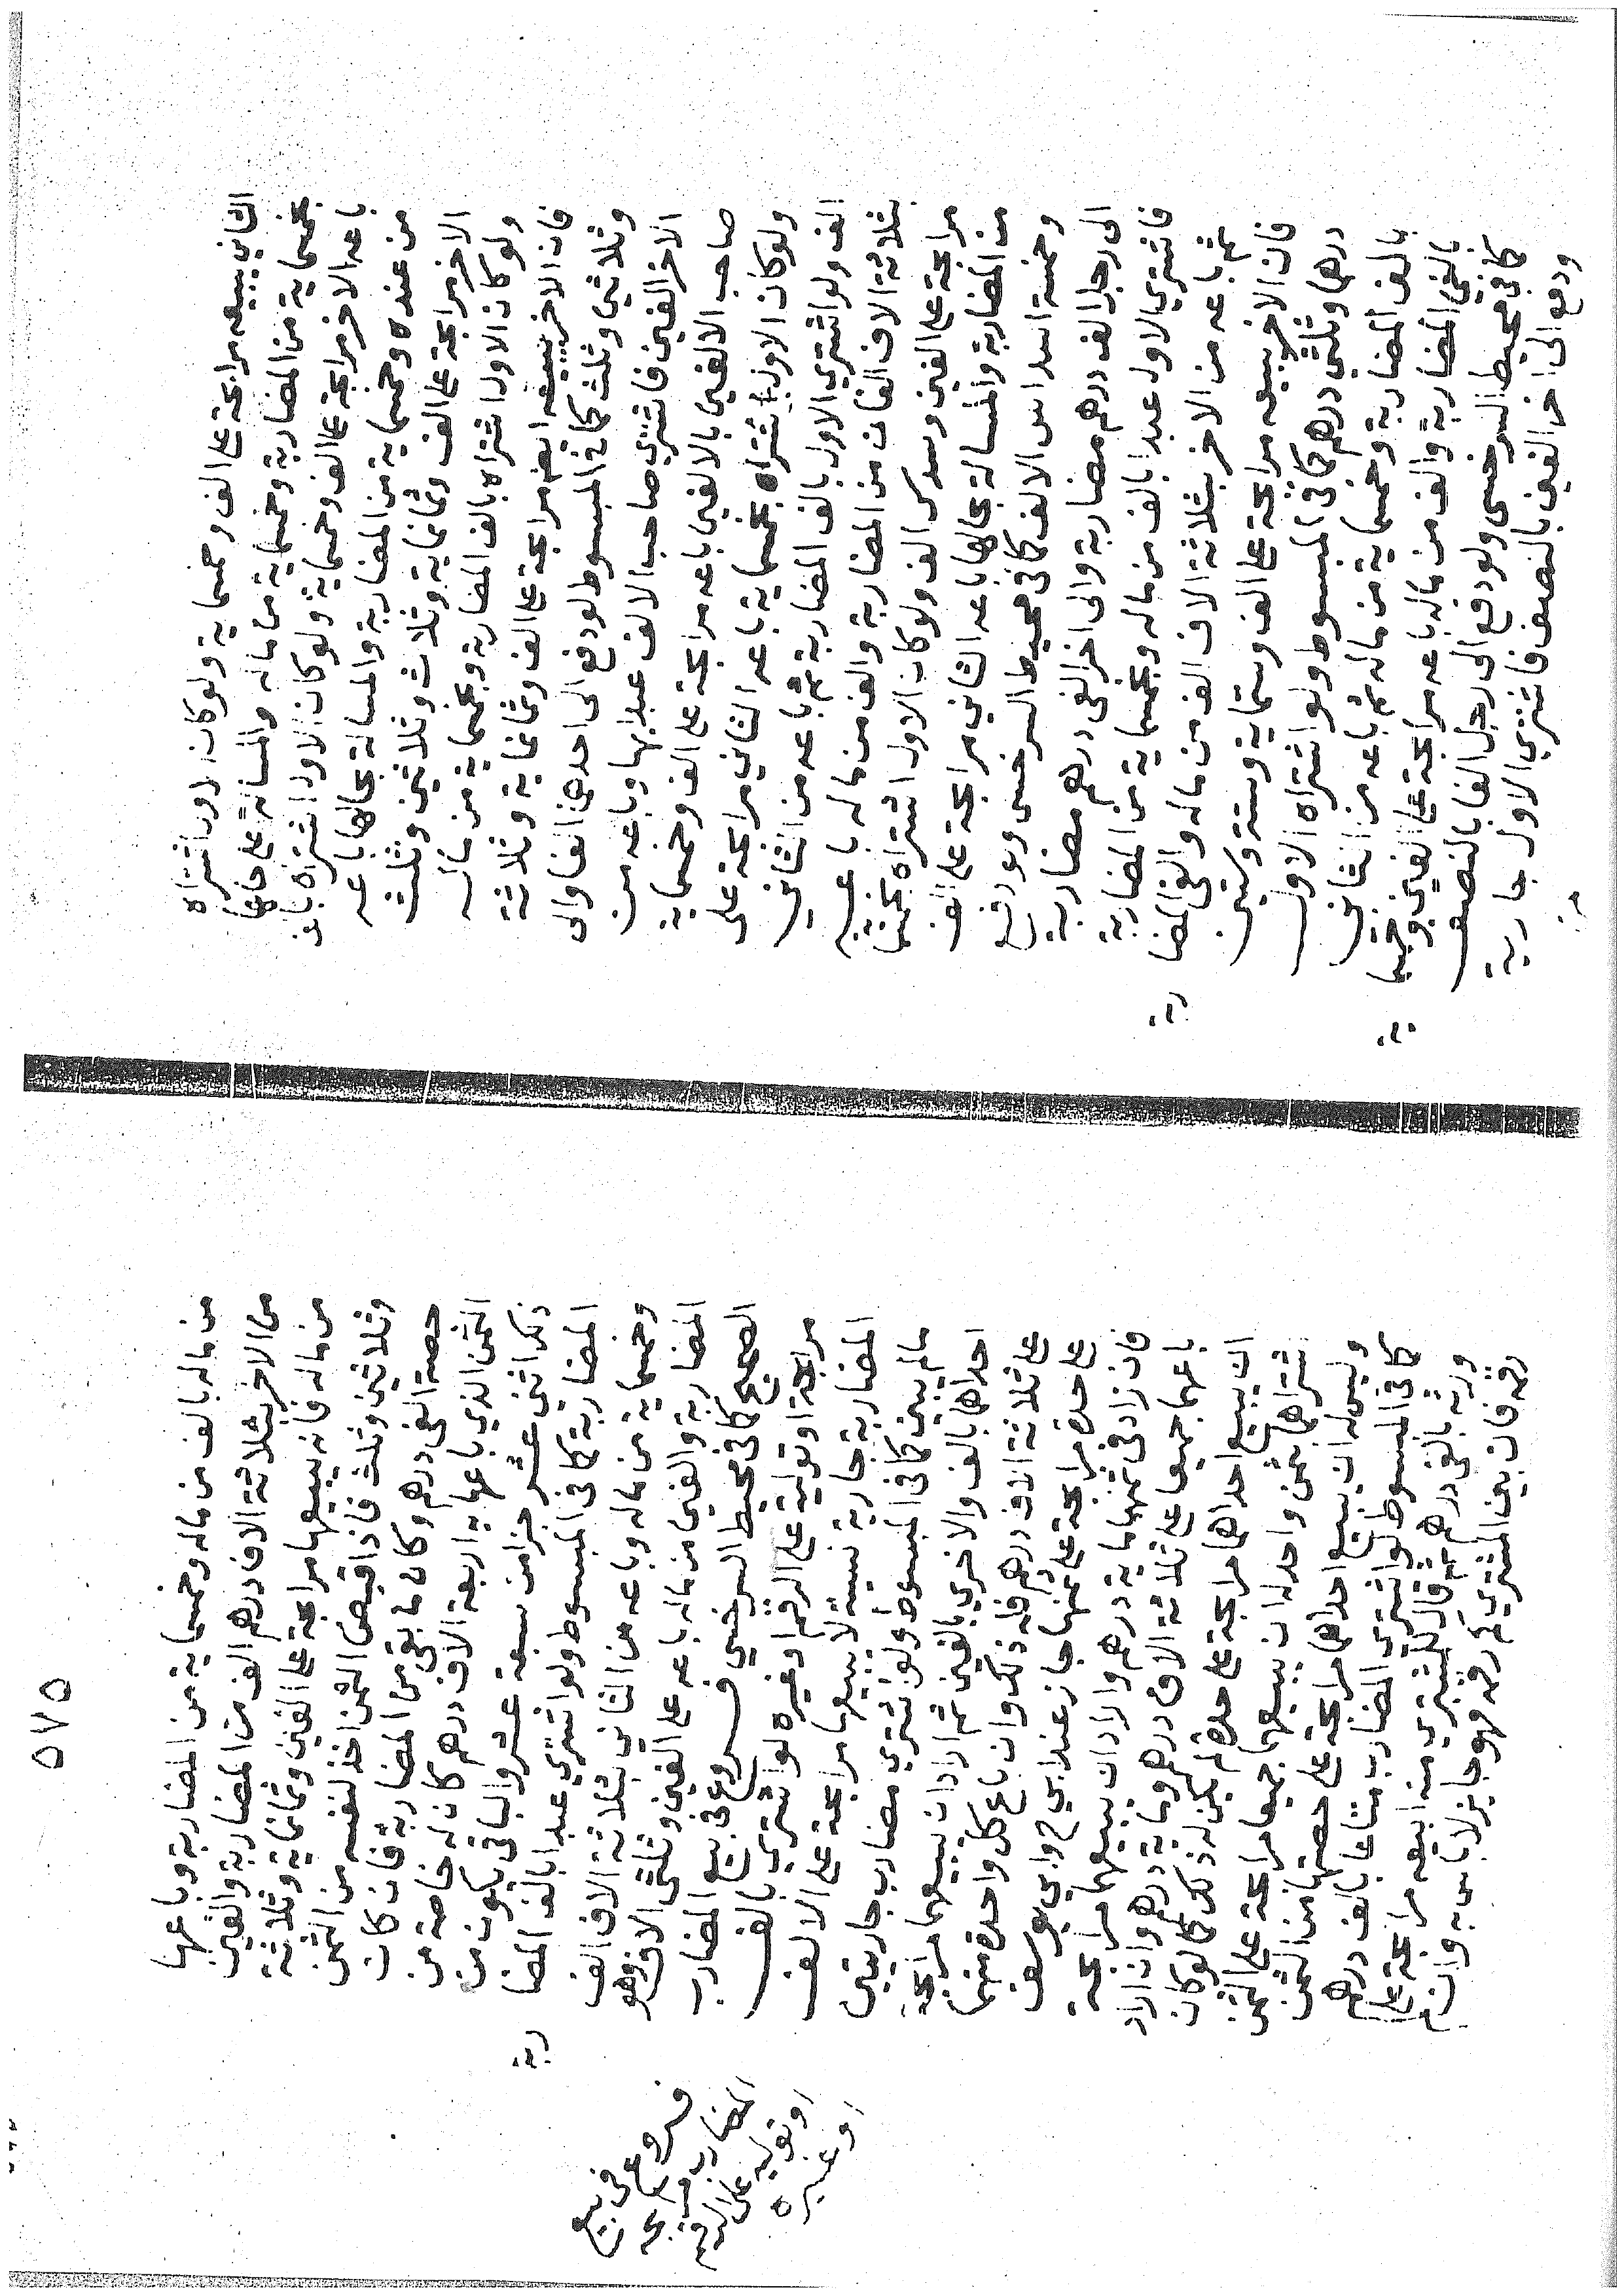 الثاني يبيعه مرابحة على الف وخمسماية ولو كان الاول اشتراه
بخمسماية من المضاربة وخمسماية من ماله والمسالة على حالها
باعه الاخر مرابحة على الف وخمسماية ولو كان الاول اشتراه بالف
من عنده وخمسماية من المضاربة والمسالة بحالها باعه
الاخر مرابحة على الف وثمانماية وثلاث وثلاثين وثلث
ولو كان الاول اشتراه بالف المضاربة وبخمسماية من ماله
فان الاخر يبيعه ايضا مرابحة على الف وثمانماية وثلاثة
وثلاثين وثلث كما في المبسوط لو دفع الى احدهما الفا والى
الاخر الفين فاشترى صاحب الالف عبدا بها وباعه من
صاحب الالفين بالالفين باعه مرابحة على الف وخمسماية
ولو كان الاول اشتراه بخمسماية باعه الثاني مرابحة على
الف ولو اشترى الاول بالف المضاربة ثم باعه من الثاني
بثلاثة الاف الفان من المضاربة والف من ماله باعه
مرابحة على الفين وسدس الف ولو كان الاول اشتراه بخمسما
من المضاربة والمسالة بحالها باعه الثاني مرابحة على الف
وخمسة اسداس الالف كما في محيط السرخسي ولو دفع
الى رجل الف درهم مضاربة والى اخر الفي درهم مضاربة
فاشترى الاول عبدا بالف من ماله وبخمسماية من المضاربة
ثم باعه من الاخر بثلاثة الاف الف من ماله والفي المضا
ربة
فان الاخر يبيعه مرابحة على الف وستماية وستة وستين
درهما وثلثي درهم كما في المبسوط ولو اشتراه الاول
بالف المضاربة وخمسماية من ماله ثم باعه من الثاني
بالفي المضاربة والف من ماله باعه مرابحة على الفين وخمسما
ية
كما في محيط السرخسي ولو دفع الى رجل الفا بالنصف
ودفع الى اخر الفين بالنصف فاشترى الاول جارية
من
٥٧٥
من ماله بالف من ماله وخمسماية من المضاربة وباعها
من الاخر بثلاثة الاف درهم الف من المضاربة والفين
من ماله فانه يبيعها مرابحة على الفين وثمانماية وثلاثة
وثلاثين وثلث فاذا قبض الثمن اخذ لنفسه من الثمن
حصة الفي درهم وكان ما بقي من المضاربة فان كان
الثمن الذي باعها به اربعة الاف درهم كان له خاصة من
ذلك اثني عشر جزا من سبعة عشر والباقي يكون من
المضاربة كما في المبسوط ولو اشترى عبدا بالف المضا
ربة
وخمسماية من ماله وباعه من الثاني بثلاثة الاف الف
المضاربة والفين من ماله باعه على الفين وثلثي الاف وهو
الصحيح كما في محيط السرخسي فروع في بيع المضارب
مرابحة او تولية على الرقم او غيره لو اشترى بالف
المضاربة جارية نسيئة لا يبيعها مرابحة على الالف
مالم يبين كما في المبسوط ولو اشترى مضارب جاريتين
احداهما بالف والاخرى بالفين ثم اراد ان يبيعهما مرابحة
على ثلاثة الاف درهم فله ذلك وان باع كل واحدة منهما
على حدة مرابحة على ثمنها جاز عند ابي ح وابي يوسف
فان زاد في ثمنهما ماية درهم والاراد ان يبيعهما مرابحة
باعهما جميعا على ثلاثة الاف درهم وماية درهم وان اراد
ان يبيع احداهما مرابحة على حدة لم يكن له ذلك كما لو كان
شراهما بثمن واحد له ان يبيعهما جميعا مرابحة على الثمن
وليس له ان يبيع احداهما مرابحة على حصتها من الثمن
كما في المبسوط لو اشترى المضارب متاعا بالف درهم
ورقمه بالفي درهم ثم قال للمشتري منه ابيعه مرابحة على
رقمه فان بين المشتري كم رقمه فهو جايز لا باس به وان لم
فروع في بيع
المضارب مرابحة
او توليه على الرقم
او غيره